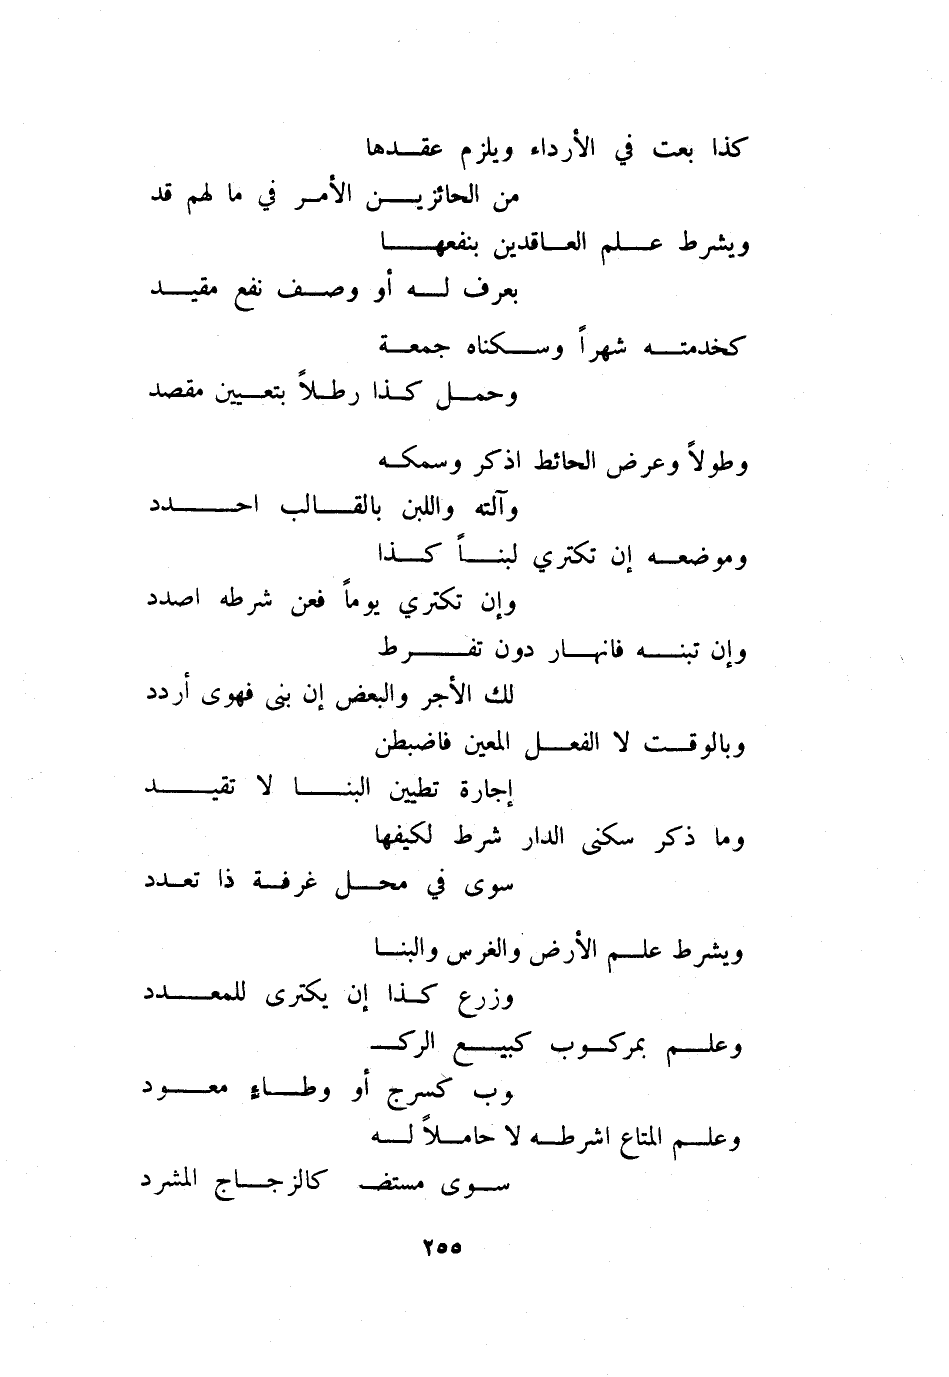 كذا بعت في الأرداء ويلزم عقدها
من الحائزين الأمر في ما لهم قد
ويشرط علم العاقدين بنفعها
بعرف له أو وصف نفع مقيد
كخدمته شهراً وسكناه جمعة
وحمل كذا رطلاً بتعيين مقصد
وطولاً وعرض الحائط اذكر وسمكه
وآلته واللبن بالقالب احدد
وموضعه إن تكتري لبناً كذا
وإن تكتري يوماً فعن شرطه اصدد
وإن تبنه فانهار دون تفرط
لك الأجر والبعض إن بنى فهوى أردد
وبالوقت لا الفعل المعين فاضبطن
إجارة تطيين البنا لا تقيد
وما ذكر سكنى الدار شرط لكيفها
سوى في محل غرفة ذا تعدد
ويشرط علم الأرض والغرس والبنا
وزرع كذا إن يكترى للمعدد
وعلم بمركوب كبيع الركـ
وب كسرج أو وطاء معود
وعلم المتاع اشرطه لا حاملاً له
سوى مستضـ كالزجاج المشرد
٢٥٥